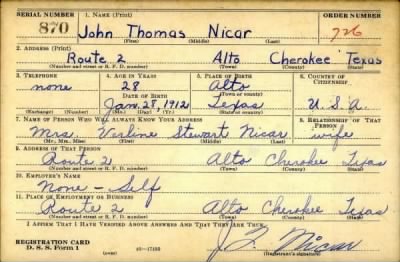 SERIAL NUMBER
1. NAME (Print)
ORDER NUMBER
870
John Thomas Nicar
726
(First) (Middle) (Last)
2. ADDRESS (Print)
Route 2 Alto Cherokee Texas
(Number and street or R. F. D. number) (Town) (County) (State)
3. TELEPHONE
none
(Exchange) (Number)
4. AGE IN YEARS
28
DATE OF BIRTH
Jan. 28, 1912
(Mo.) (Day) (Yr.)
5. PLACE OF BIRTH
Alto
(Town or county)
Texas
(State or country)
6. COUNTRY OF CITIZENSHIP
U.S.A.
7. NAME OF PERSON WHO WILL ALWAYS KNOW YOUR ADDRESS
Mrs. Verline Stewart Nicar
(Mr., Mrs., Miss) (First) (Middle) (Last)
8. RELATIONSHIP OF THAT PERSON
wife
9. ADDRESS OF THAT PERSON
Route 2 Alto Cherokee Texas
(Number and street or R. F. D. number) (Town) (County) (State)
10. EMPLOYER'S NAME
None - Self
11. PLACE OF EMPLOYMENT OR BUSINESS
Route 2 Alto Cherokee Texas
(Number and street or R. F. D. number) (Town) (County) (State)
I AFFIRM THAT I HAVE VERIFIED ABOVE ANSWERS AND THAT THEY ARE TRUE.
REGISTRATION CARD
D. S. S. Form 1
16-17105
J. T. Nicar
(Registrant's signature)